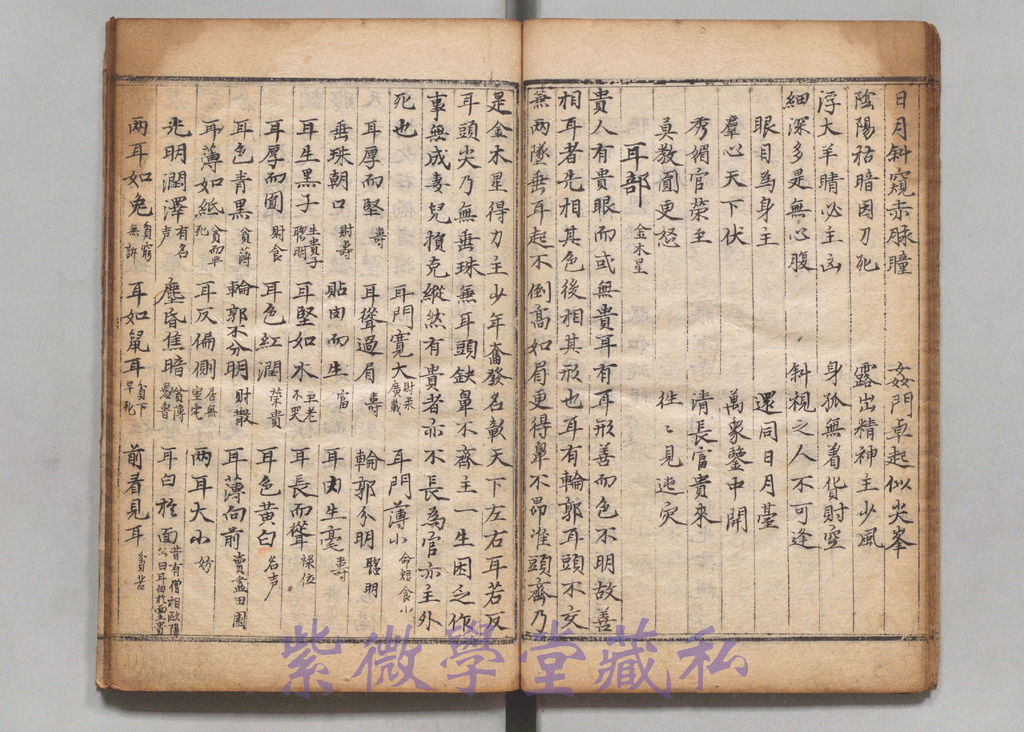 日月斜窺赤脉瞳　姦門卓起似尖峯
陰陽祜暗因刀死　露出精神主少風
浮大羊睛必主凶　身孤無着貨財空
細深多是無心腹　斜視之人不可逢
眼目為身主　還同日月臺
羣心天下伏　萬象鑒中開
秀媚官榮至　清長富貴來
莫教圓更怒　徃〻見迍灾
耳部 金木星
貴人有貴眼而或無貴耳有耳形善而色不明故善
相耳者先相其色後相其形也耳有輪郭耳頭不交
無兩墜垂耳起不倒高如眉更得單不昻准頭齊乃
是金木星得力主少年奮發名彰天下左右耳若反
耳頭尖乃無垂珠無耳頭缺單不齊主一生困乏作
事無成妻兒損克縱然有貴者亦不長為官亦主外
死也
耳厚而堅 壽　耳門寬大 財廣　耳門薄小 命短食小
垂珠朝口 財壽　耳聳過眉 壽　輪郭分明 聰明
耳生黑子 生貴子聰明　貼肉而生 富　耳內生毫 壽
耳厚而圓 財食　耳堅如木 至老不哭　耳長而聳 祿位
耳色青黑 貧薄　耳色紅潤 榮貴　耳色黃白 名声
耳薄如紙 貧而早死　輪郭不分明 財散　耳薄向前 賣盡田園
光明潤澤 有名声　耳反偏側 居無室宅　兩耳大小 妨
兩耳如兔 貧窮無許　塵昏焦暗 貧薄愚魯　耳白於面 昔有僧相歐陽公曰耳白於面主貴
耳如鼠耳 貧下早死　前看見耳 貧苦
紫微學堂藏私